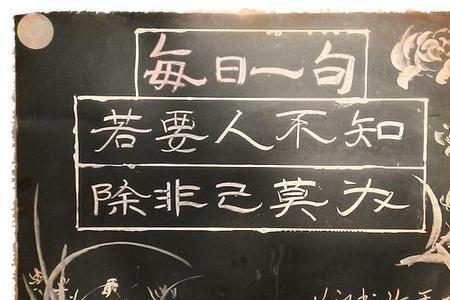 每日一句
若要人不知
除非己莫为